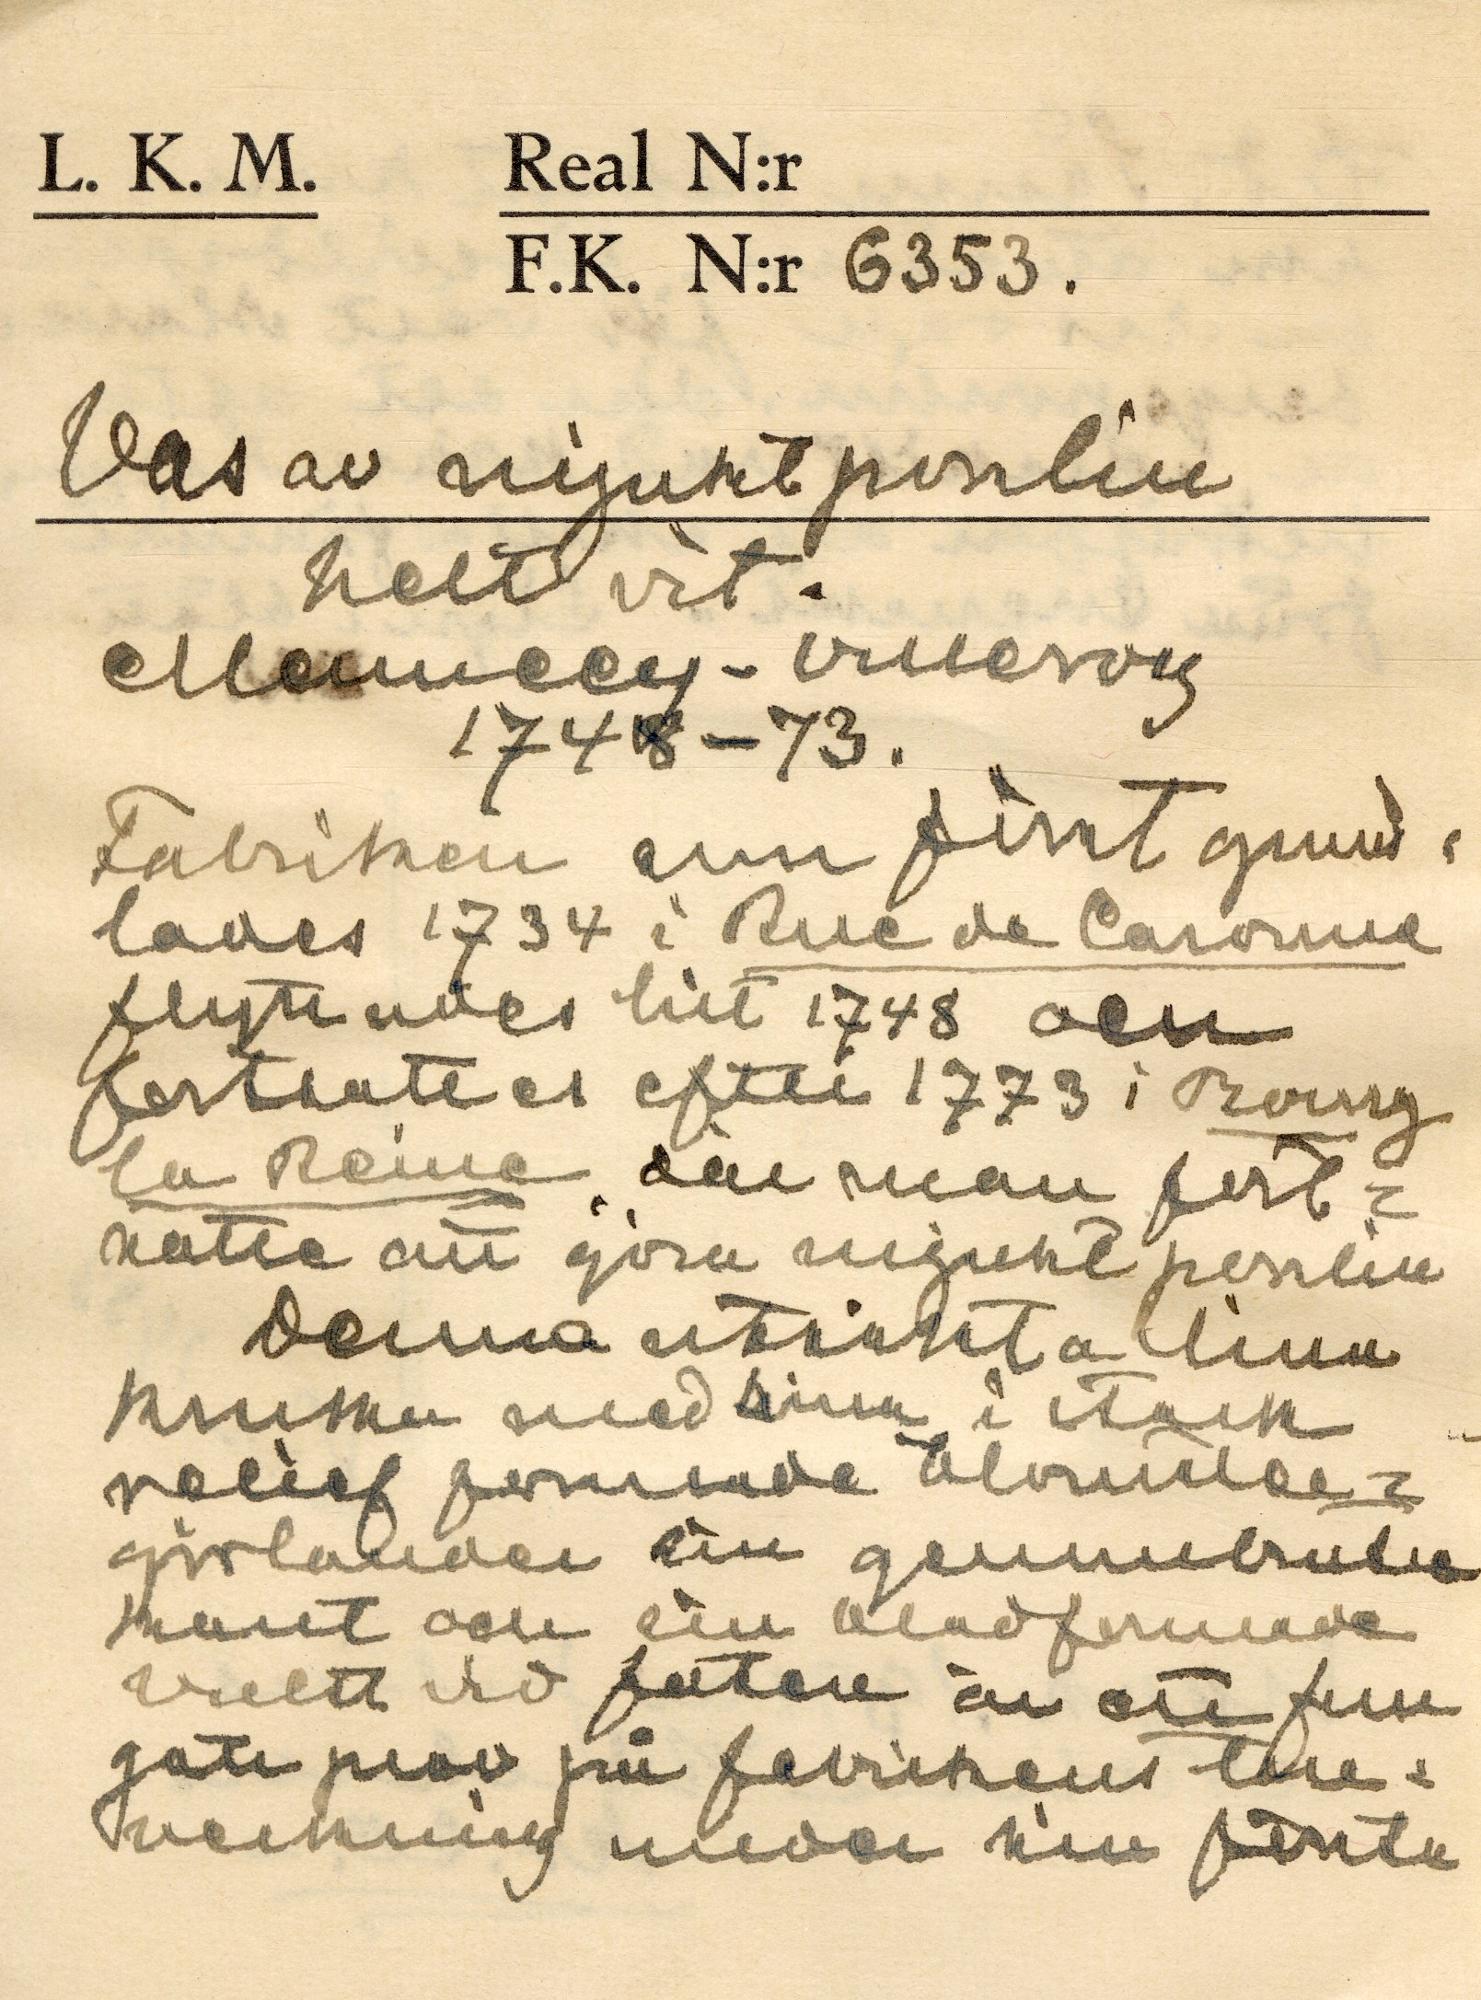 L. K. M. Real N:r
F.K. N:r 6353.
Vas av mjukt porslin
helt vit.
Mennecy-Villeroy
1748-73.
Fabriken som först grund-
lades 1734 i Rue de Caronne
flyttades hit 1748 och
fortsattes efter 1773 i Bourg
la Reine, där man fort=
satte att göra mjukt porslin
Denna utsökta lilla
kruka med sina i stark
relief formade blomster=
girlander sin genombrutna
kant och sin bladformade
vulst vid foten är ett fullt
gott prov på fabrikens till-
verkning under sin första